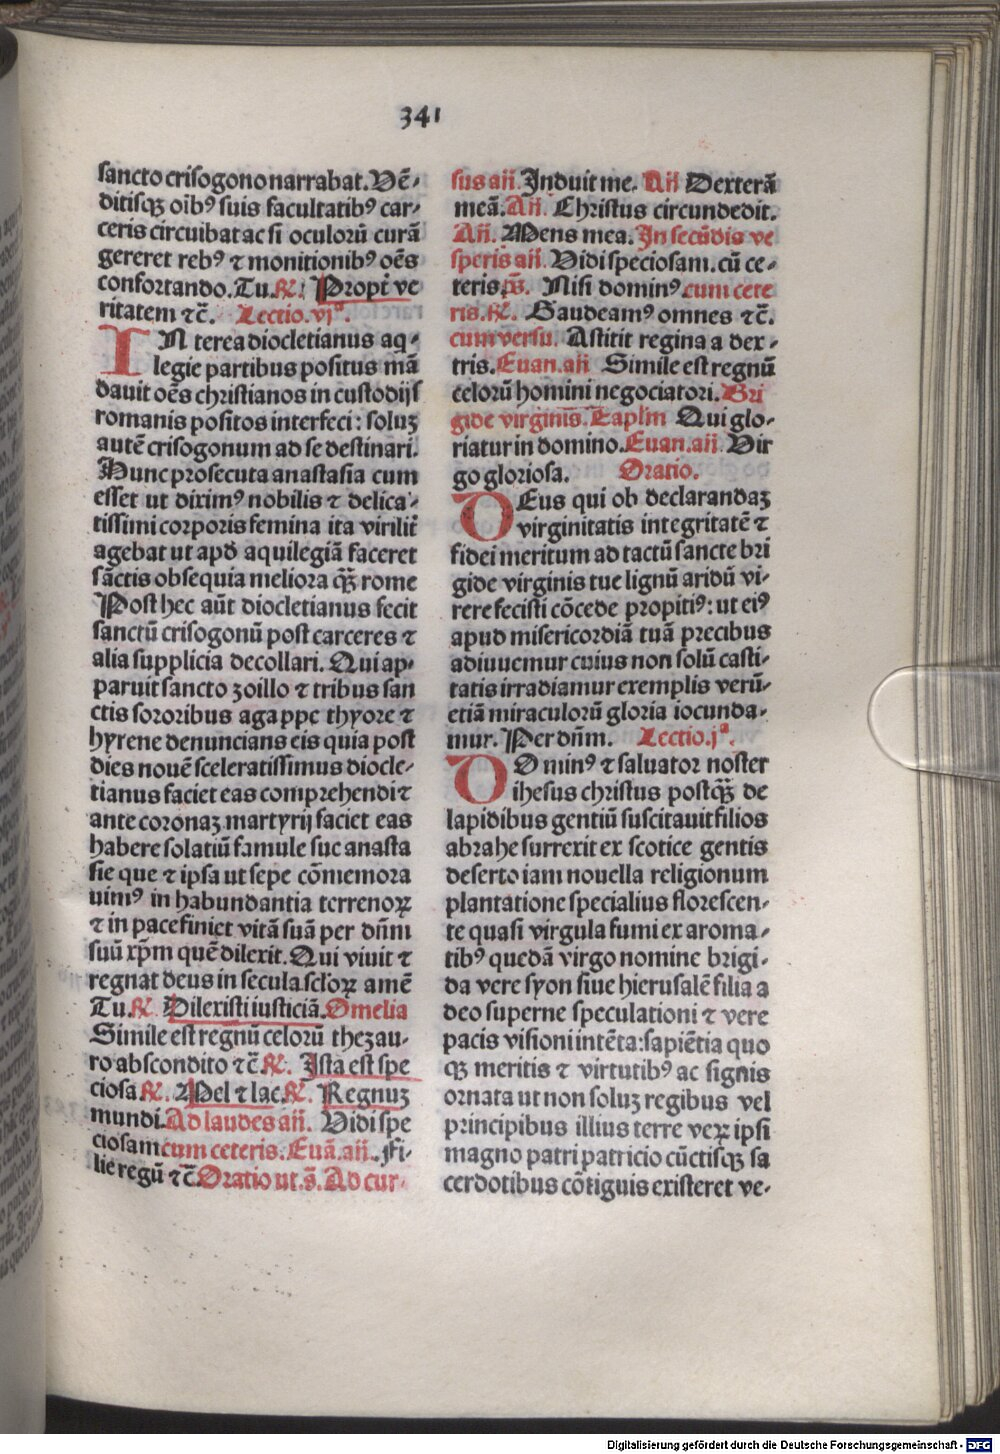 341
sancto crisogono narrabat. Vē-
ditisqꝫ oībꝰ suis facultatibꝰ car-
ceris circuibat ac si oculorū curā
gereret rebꝰ ⁊ monitionibꝰ oēs
confortando. Tu. ℟. Propt̄ ve
ritatem ⁊c̄. Lectio. vjᵃ.
IN terea diocletianus aq-
legie partibus positus mā
dauit oēs christianos in custodijs
romanis positos interfeci: soluꝫ
autē crisogonum ad se destinari.
Hunc prosecuta anastasia cum
esset ut diximꝰ nobilis ⁊ delica-
tissimi corporis femina ita virilit̄
agebat ut apd̄ aquilegiā faceret
sāctis obsequia meliora qꝫ̄ rome
Post hec aūt diocletianus fecit
sanctū crisogonū post carceres ⁊
alia supplicia decollari. Qui ap-
paruit sancto zoillo ⁊ tribus san
ctis sororibus agappe thyore ⁊
hyrene denuncians eis quia post
dies nouē sceleratissimus diocle-
tianus faciet eas comprehendi ⁊
ante coronaꝫ martyrij faciet eas
habere solatiū famule sue anasta
sie que ⁊ ipsa ut sepe cōmemora
uimꝰ in habundantia terrenoꝝ
⁊ in pace finiet vitā suā per dn̄m
suū xp̄m quē dilexit. Qui viuit ⁊
regnat deus in secula scl̄oꝝ amē
Tu. ℟. Dilexisti iusticiā. Omelia
Simile est regnū celorū thezau-
ro abscondito ⁊c̄ ℟. Ista est spe
ciosa ℟. Mel ⁊ lac. ℟. Regnuꝫ
mundi. Ad laudes an̄. Vidi spe
ciosam cum ceteris. Euā. an̄. Fi-
lie regū ⁊c̄. Oratio ut. s̄. Ad cur-
sus an̄. Induit me. An̄ Dexterā
meā. An̄. Christus circundedit.
An̄. Mens mea. In secūdis ve
speris an̄. Vidi speciosam. cū ce-
teris. ps̄. Nisi dominꝰ cum cete
ris. ℟. Gaudeamꝰ omnes ⁊c̄.
cum versu. Astitit regina a dex-
tris. Euan. an̄ Simile est regnū
celorū homini negociatori. Bri
gide virginis̄. Capl̄m Qui glo-
riatur in domino. Euan. an̄. Vir
go gloriosa. Oratio.
DEus qui ob declarandaꝫ
virginitatis integritatē ⁊
fidei meritum ad tactū sancte bri
gide virginis tue lignū aridū vi-
rere fecisti cōcede propitiꝰ: ut eiꝰ
apud misericordiā tuā precibus
adiuuemur cuius non solū casti-
tatis irradiamur exemplis verū-
etiā miraculorū gloria iocunda-
mur. Per dn̄m. Lectio. jᵃ.
DO minꝰ ⁊ saluator noster
ihesus christus postqꝫ̄ de
lapidibus gentiū suscitauit filios
abrahe surrexit ex scotice gentis
deserto iam nouella religionum
plantatione specialius florescen-
te quasi virgula fumi ex aroma-
tibꝰ quedā virgo nomine brigi-
da vere syon siue hierusalē filia a
deo superne speculationi ⁊ vere
pacis visioni intēta: sapiētia quo
qꝫ meritis ⁊ virtutibꝰ ac signis
ornata ut non soluꝫ regibus vel
principibus illius terre veꝝ ipsi
magno patri patricio cūctisqꝫ sa
cerdotibus cōtiguis existeret ve-
Digitalisierung gefördert durch die Deutsche Forschungsgemeinschaft - DFG